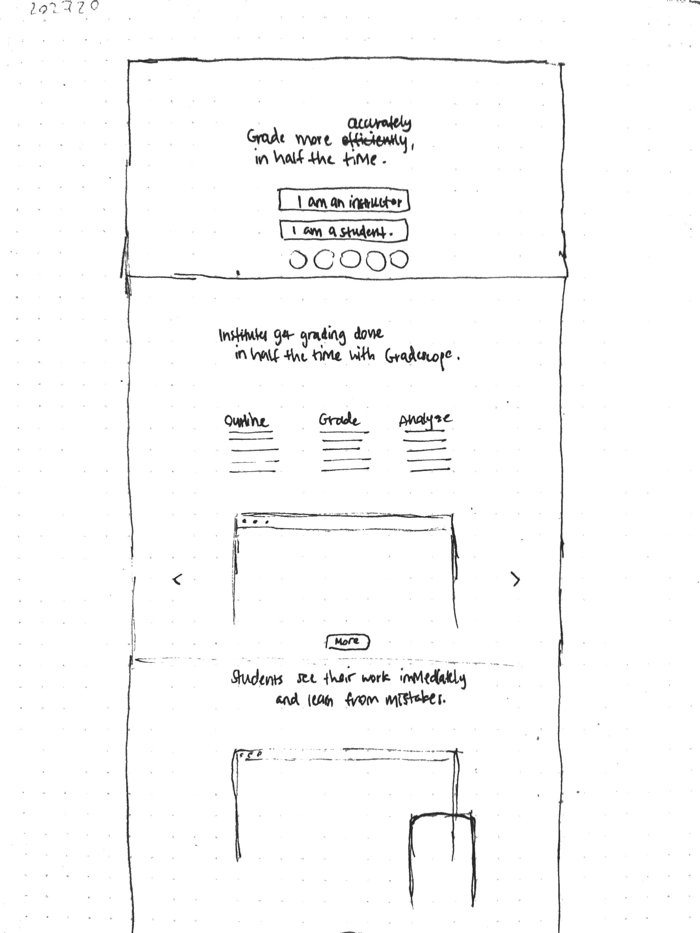 accurately
Grade more efficiently,
in half the time.
I am an instructor
I am a student.
Institutes get grading done
in half the time with Gradescope.
Outline Grade Analyze
< >
More
Students see their work immediately
and learn from mistakes.